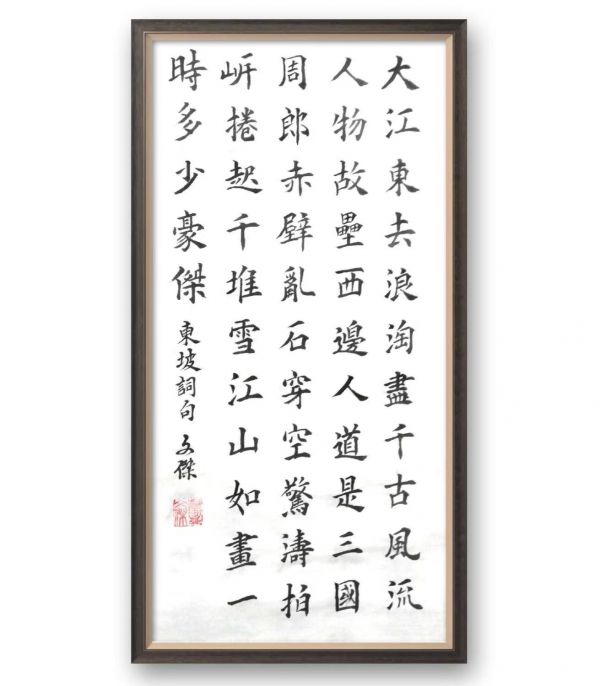 大江東去浪淘盡千古風流
人物故壘西邊人道是三國
周郎赤壁亂石穿空驚濤拍
岸捲起千堆雪江山如畫一
時多少豪傑 東坡詞句 文傑